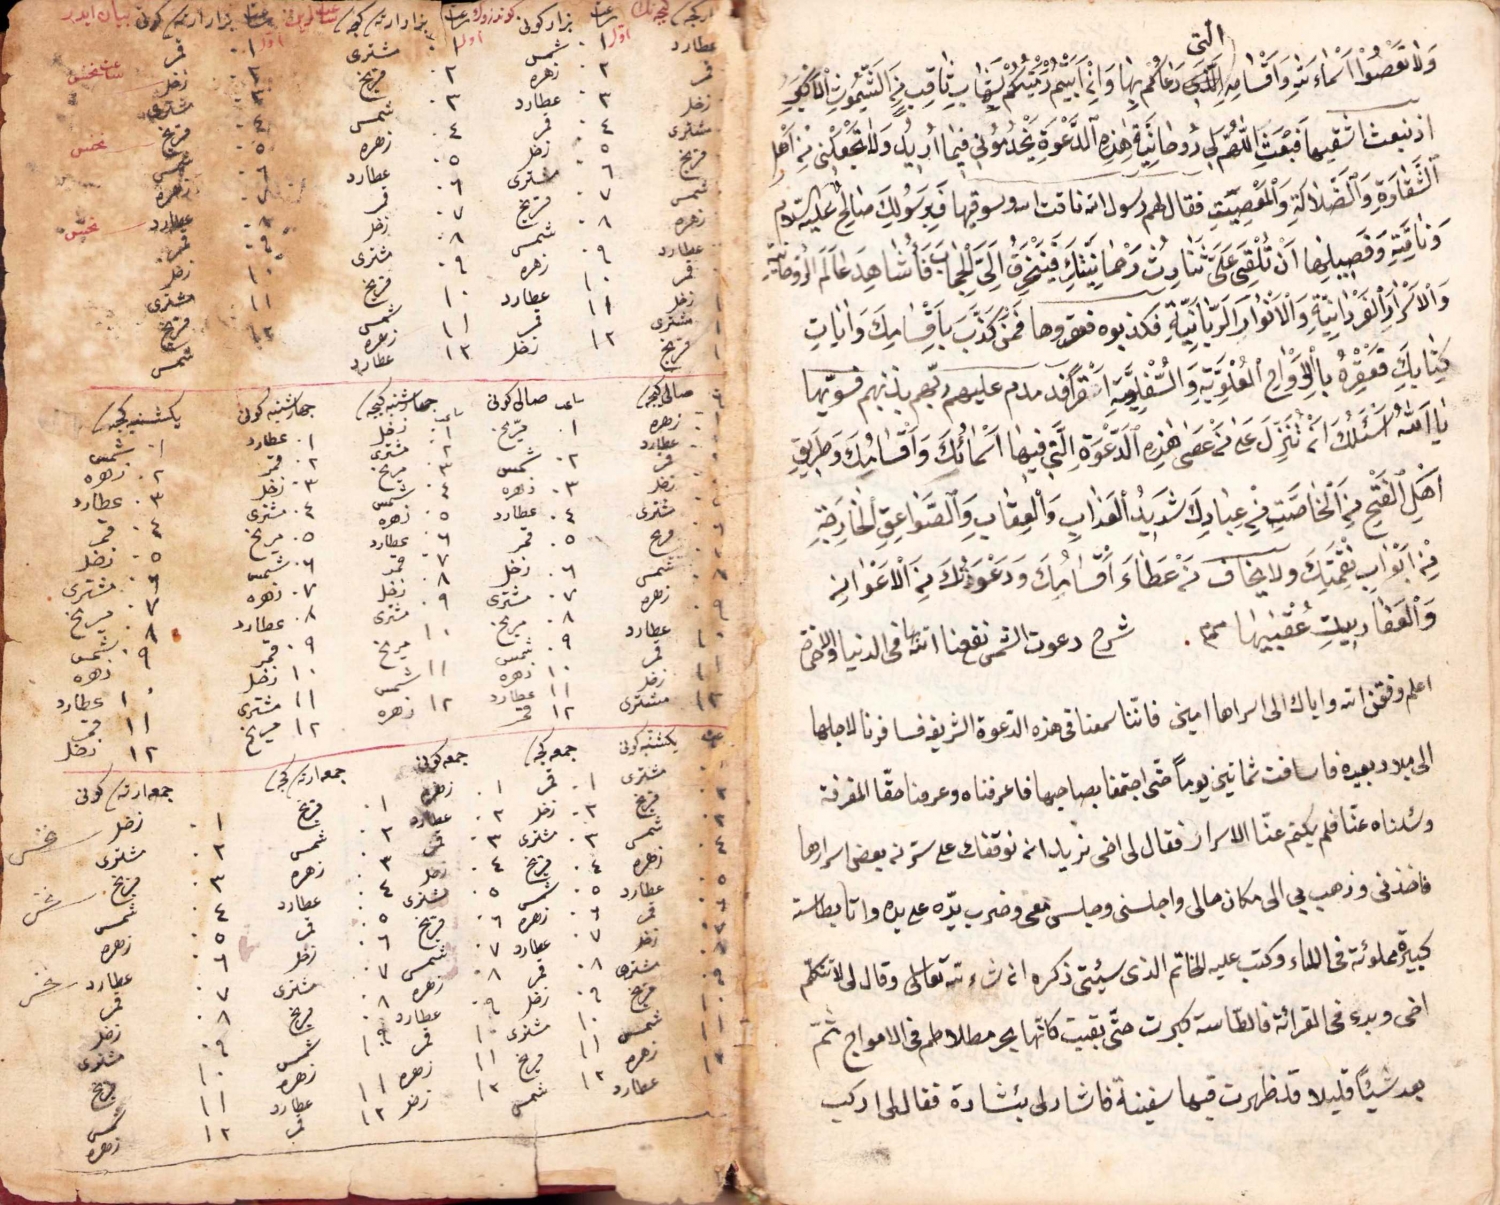 التى
وَلَا تَعْصُوْا اَسْمَاءَ وَاَقْسَامِهِ دَعَاكُمْ بِهَا وَاِنْ اَبَيْتُمْ بِشِهَابٍ ثَاقِبٍ الْاَكْبَرِ
اذ نبعث اشقيها فَبْعَثْ اَللّٰهُمَّ لِى رُوحَانِيَّةَ هٰذِهِ الدَّعْوَةِ يَخْدُمُونِى فِيمَا اُرِيدُ وَلَا تَجْعَلْنِى مِنْ اَهْلِ
الشَّقَاوَةِ وَالضَّلَالَةِ وَالْمَعْصِيَّتِ فقال لهم رسول الله ناقت الله وسوقيها فَبِرَسُولِكَ صَالِحٍ عَلَيْهِ السَّلَام
وَنَاقَتِهِ وَفَصِيلِهَا اَنْ تُلْقِىَ عَلَىَّ رَحْمَانِيَّتِكَ فَيَنْخَرِقُ اِلَىَّ الْحِجَابُ فَاُشَاهِدَ عَالَمَ الرُّوحَانِيَّةِ
وَالْاَسْرَارِ الْفَرْدَانِيَّةِ وَالْاَنْوَارِ الرَّبَّانِيَّةِ فكذبوه فعقروها فَمَنْ كَذَّبَ بِاَقْسَامِكَ وَاٰيَاتِ
كِتَابِكَ فَعَقِّرْهُ بِالْاَرْوَاحِ الْعُلْوِيَّةِ وَالسُّفْلِيَّةِ فدمدم عليهم ربهم بذنبهم فسويها
يَا اَللّٰهُ اَسْئَلُكَ اَنْ تُنَزِّلَ عَلٰى مَنْ عَصٰى هٰذِهِ الدَّعْوَةِ الَّتِى فِيهَا اَسْمَائُكَ وَاَقْسَامُكَ وَطَرِيقِ
اَهْلِ الْفَتْحِ مِنَ الْخَاصَّةِ مِنْ عِبَادِكَ شَدِيدُ الْعَذَابِ وَالْعِقَابِ وَالصَّوَاعِقِ الْخَارِجَةِ
مِنْ اَبْوَابِ نِقْمَتِكَ ولا يخاف مَنْ عَصَاءَ اَقْسَامُكَ وَدَعْوَتُكَ مِنَ الْاَعْوَانِ
وَالْعَفَارِيتِ عُقْبٰيهَا شرح دعوت الشمس نفعنا الله بها فى الدنيا والاخرة
اعلم وفقنى الله واياك الى اسرارها امين فاننا سمعنا فى هذه الدعوة الشريفه فسافرنا لاجلها
الى بلاد بعيده فاسافت ثمانين يوماً حتى اجتمعنا بصاحبها فاعرفناه وعرفنا حقا المعرفة
وسئلناه عنا فلم يكتم عنا الاسرار فقال لى اخى نريد ان نوقفك على سر من بعض اسرارها
فاخذنى وذهب بى الى مكان خالى واجلسنى وجلس معى وضرب يده على يده واتا بطاسة
كبيرة مملوئة فى الماء وكتب عليه الخاتم الذى سيئتى ذكره ان شاء الله تعالى وقال لى لا تتكلم
اخى وبدء فى القرائة فالطاسة كبرت حتى بقيت كانها بحر مطلاطم فى الامواج ثم
بعد شيئاً قليلا قد ظهرت فيها سفينة فاشار لى بئشارة فقال لى اركب
عطارد ١ شمس ١ مشترى ١ قمر
قمر ٢ زهره ٢ مريخ ٢ زحل
زحل ٣ عطارد ٣ شمس ٣ مشترى
مشترى ٤ قمر ٤ زهره ٤ مريخ
مريخ ٥ زحل ٥ عطارد ٥ شمس
شمس ٦ مشترى ٦ قمر ٦ زهره
زهره ٧ مريخ ٧ زحل ٧ عطارد
عطارد ٨ شمس ٨ مشترى ٨ قمر
قمر ٩ زهره ٩ مريخ ٩ زحل
زحل ١٠ عطارد ١٠ شمس ١٠ مشترى
مشترى ١١ قمر ١١ زهره ١١ مريخ
مريخ ١٢ زحل ١٢ عطارد ١٢ شمس
صالى كيجه صالى كونى جهارشنبه كيجه جهارشنبه كونى يكشنبه كيجه
زهره ١ مريخ ١ زحل ١ عطارد ١ شمس
عطارد ٢ شمس ٢ مشترى ٢ قمر ٢ زهره
قمر ٣ زهره ٣ مريخ ٣ زحل ٣ عطارد
زحل ٤ عطارد ٤ شمس ٤ مشترى ٤ قمر
مشترى ٥ قمر ٥ زهره ٥ مريخ ٥ زحل
مريخ ٦ زحل ٦ عطارد ٦ شمس ٦ مشترى
شمس ٧ مشترى ٧ قمر ٧ زهره ٧ مريخ
زهره ٨ مريخ ٨ زحل ٨ عطارد ٨ شمس
عطارد ٩ شمس ٩ مشترى ٩ قمر ٩ زهره
قمر ١٠ زهره ١٠ مريخ ١٠ زحل ١٠ عطارد
زحل ١١ عطارد ١١ شمس ١١ مشترى ١١ قمر
مشترى ١٢ قمر ١٢ زهره ١٢ مريخ ١٢ زحل
يكشنبه كونى جمعه كيجه جمعه كونى جمعه ارتەسى كيجه جمعه ارتەسى كونى
مشترى ١ قمر ١ زهره ١ مريخ ١ زحل نحس
مريخ ٢ زحل ٢ عطارد ٢ شمس ٢ مشترى
شمس ٣ مشترى ٣ قمر ٣ زهره ٣ مريخ نحس
زهره ٤ مريخ ٤ زحل ٤ عطارد ٤ شمس
عطارد ٥ شمس ٥ مشترى ٥ قمر ٥ زهره
قمر ٦ زهره ٦ مريخ ٦ زحل ٦ عطارد نحس
زحل ٧ عطارد ٧ شمس ٧ مشترى ٧ قمر
مشترى ٨ قمر ٨ زهره ٨ مريخ ٨ زحل
مريخ ٩ زحل ٩ عطارد ٩ شمس ٩ مشترى
شمس ١٠ مشترى ١٠ قمر ١٠ زهره ١٠ مريخ
زهره ١١ مريخ ١١ زهره ١١ عطارد ١١ شمس
عطارد ١٢ شمس ١٢ زحل ١٢ قمر ١٢ زهره